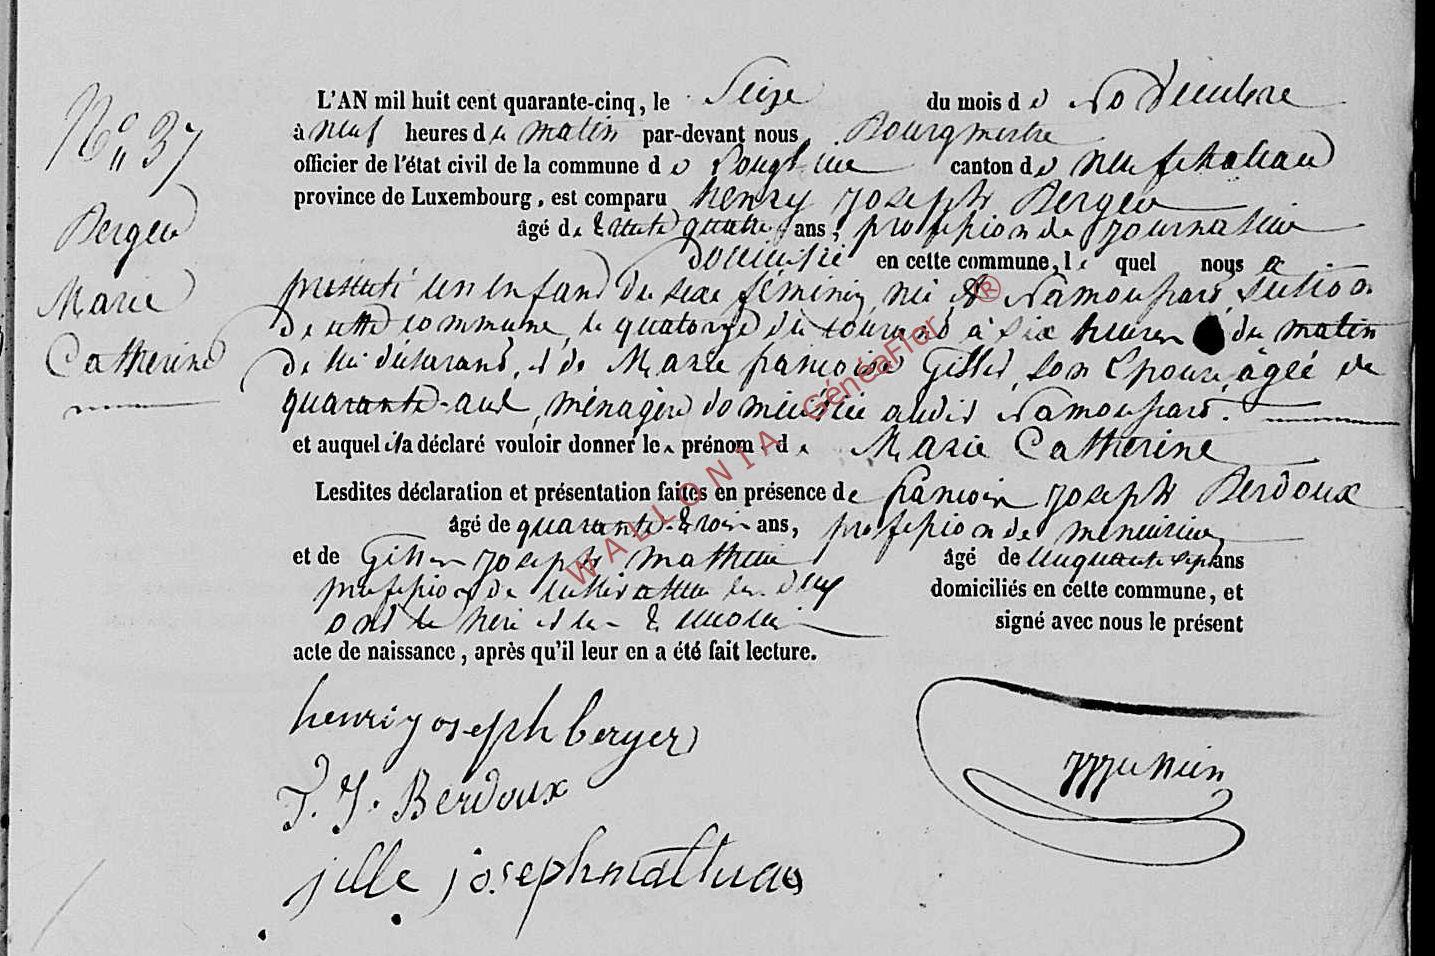 N° 37
Berger
Marie
Catherine
L'AN mil huit cent quarante-cinq, le Seize du mois de Novembre
à neuf heures du matin par-devant nous Bourgmestre
officier de l'état civil de la commune de canton de neufchateau
province de Luxembourg, est comparu henry joseph Berger
âgé de trente quatre ans, profession de journalier
domicilié en cette commune, le quel nous a
présenté un enfant du sexe féminin née à Namoussart, section
de cette commune, le quatorze du courant à six heures du matin
de lui déclarant, et de Marie françoise Gilles, son Epouse, âgée de
quarante-un, ménagère domiciliée audit Namoussart.
et auquel il a déclaré vouloir donner les prénoms de Marie Catherine
Lesdites déclaration et présentation faites en présence de françois joseph Berdoux
âgé de quarante-trois ans, profession de menuisier
et de Gilles joseph mathieu âgé de cinquante sept ans
profession de cultivateur les deux domiciliés en cette commune, et
ont le père et les témoins signé avec nous le présent
acte de naissance, après qu'il leur en a été fait lecture.
henri joseph berger
F. J. Berdoux
jille joseph mathieu
WALLONIA GénéaFler ®